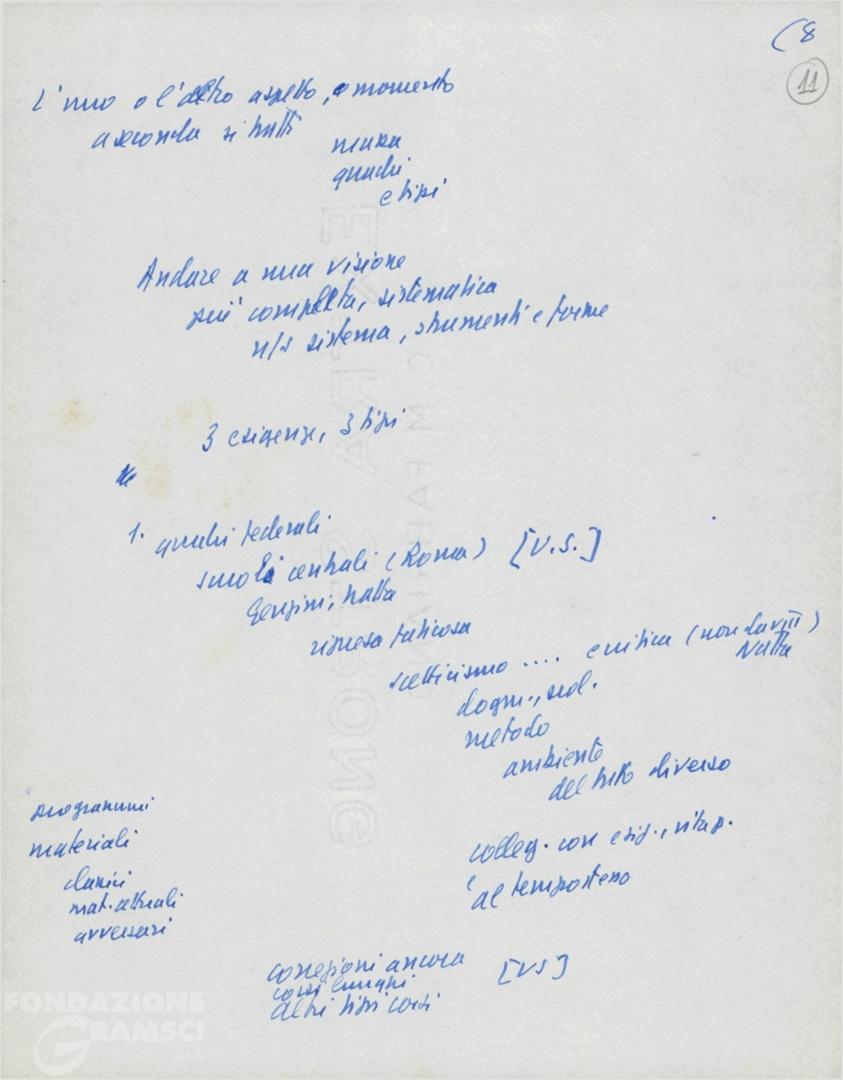 (8
11
L'uno o l'altro aspetto, o momento
a seconda si tratti
massa
quadri
e tipi
Andare a una visione
più completa, sistematica
n/s sistema, strumenti e forme
3 esigenze, 3 tipi
1. quadri federali
scuole centrali (Roma) [V.S.]
Gensini, Natta
ripresa faticosa
scetticismo .... critica (non da VIII)
Natta
dogm.,
metodo
ambiente
del tutto diverso
colleg. con esig., vita p.
e
al tempo stesso
programmi
materiali
classici
mat. attuali
avversari
correzioni ancora [VS]
corsi lunghi
altri tipi corsi
FONDAZIONE
GRAMSCI